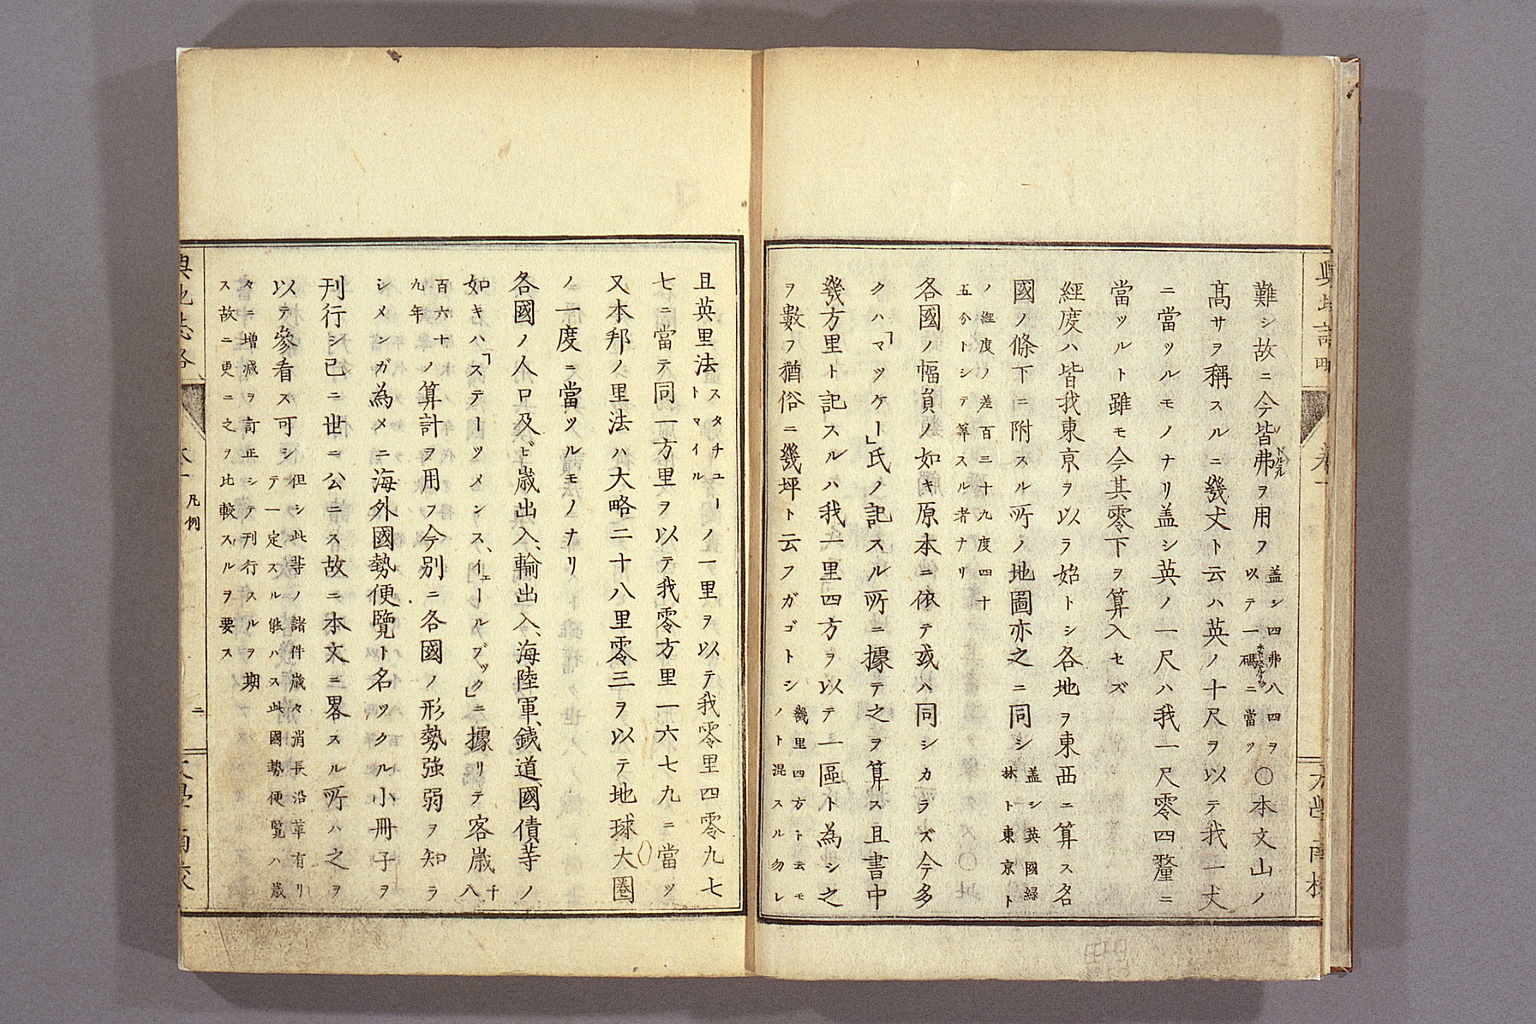 難シ故ニ今皆弗ドルラルヲ用フ蓋シ四弗八四ヲ以テ一磅ニ當ツ〇本文山ノ
髙サヲ稱スルニ幾丈ト云ハ英ノ十尺ヲ以テ我一丈
ニ當ツルモノナリ蓋シ英ノ一尺ハ我一尺零四釐ニ
當ツルト雖モ今其零下ヲ算入セズ
經度ハ皆我東京ヲ以ラ始トシ各地ヲ東西ニ算ス名
國ノ條下ニ附スル所ノ地圖亦之ニ同シ蓋シ英國緑林ト東京ト
ノ經度ノ差百三十九度四十五分トシテ筭スル者ナリ
各國ノ幅員ノ如キ原本ニ依テ或ハ同シカラズ今多
クハ「マッケー」氏ノ記スル所ニ據テ之ヲ算ス且書中
幾方里ト記スルハ我一里四方ヲ以テ一區ト為シ之
ヲ數フ猶俗ニ幾坪ト云フガゴトシ幾里四方ト云モノト混スル勿レ
且英里法スタチュートマイルノ一里ヲ以テ我零里四零九七
七ニ當テ同一方里ヲ以テ我零方里一六七九ニ當ツ
又本邦ノ里法ハ大略二十八里零三ヲ以テ地球大圏
ノ一度ニ當ツルモノナリ
各國ノ人口及ビ歳出入、輸出入、海陸軍、銕道、國債等ノ
如キハ「ステーツメンス、イェールブック」ニ據リテ客歳千八
百六十九年ノ算計ヲ用フ今別ニ各國ノ形勢強弱ヲ知ラ
シメンガ為メニ海外國勢便覽ト名ツクル小冊子ヲ
刊行シ已ニ世ニ公ニス故ニ本文ニ畧スル所ハ之ヲ
以テ參看ス可シ但シ此等ノ諸件歳々消長沿革有リテ一定スル能ハス此國勢便覽ハ歳
々ニ増減ヲ訂正シテ刊行スルヲ期ス故ニ更ニ之ヲ比較スルヲ要ス
輿地誌略
凡例
二
大學南校